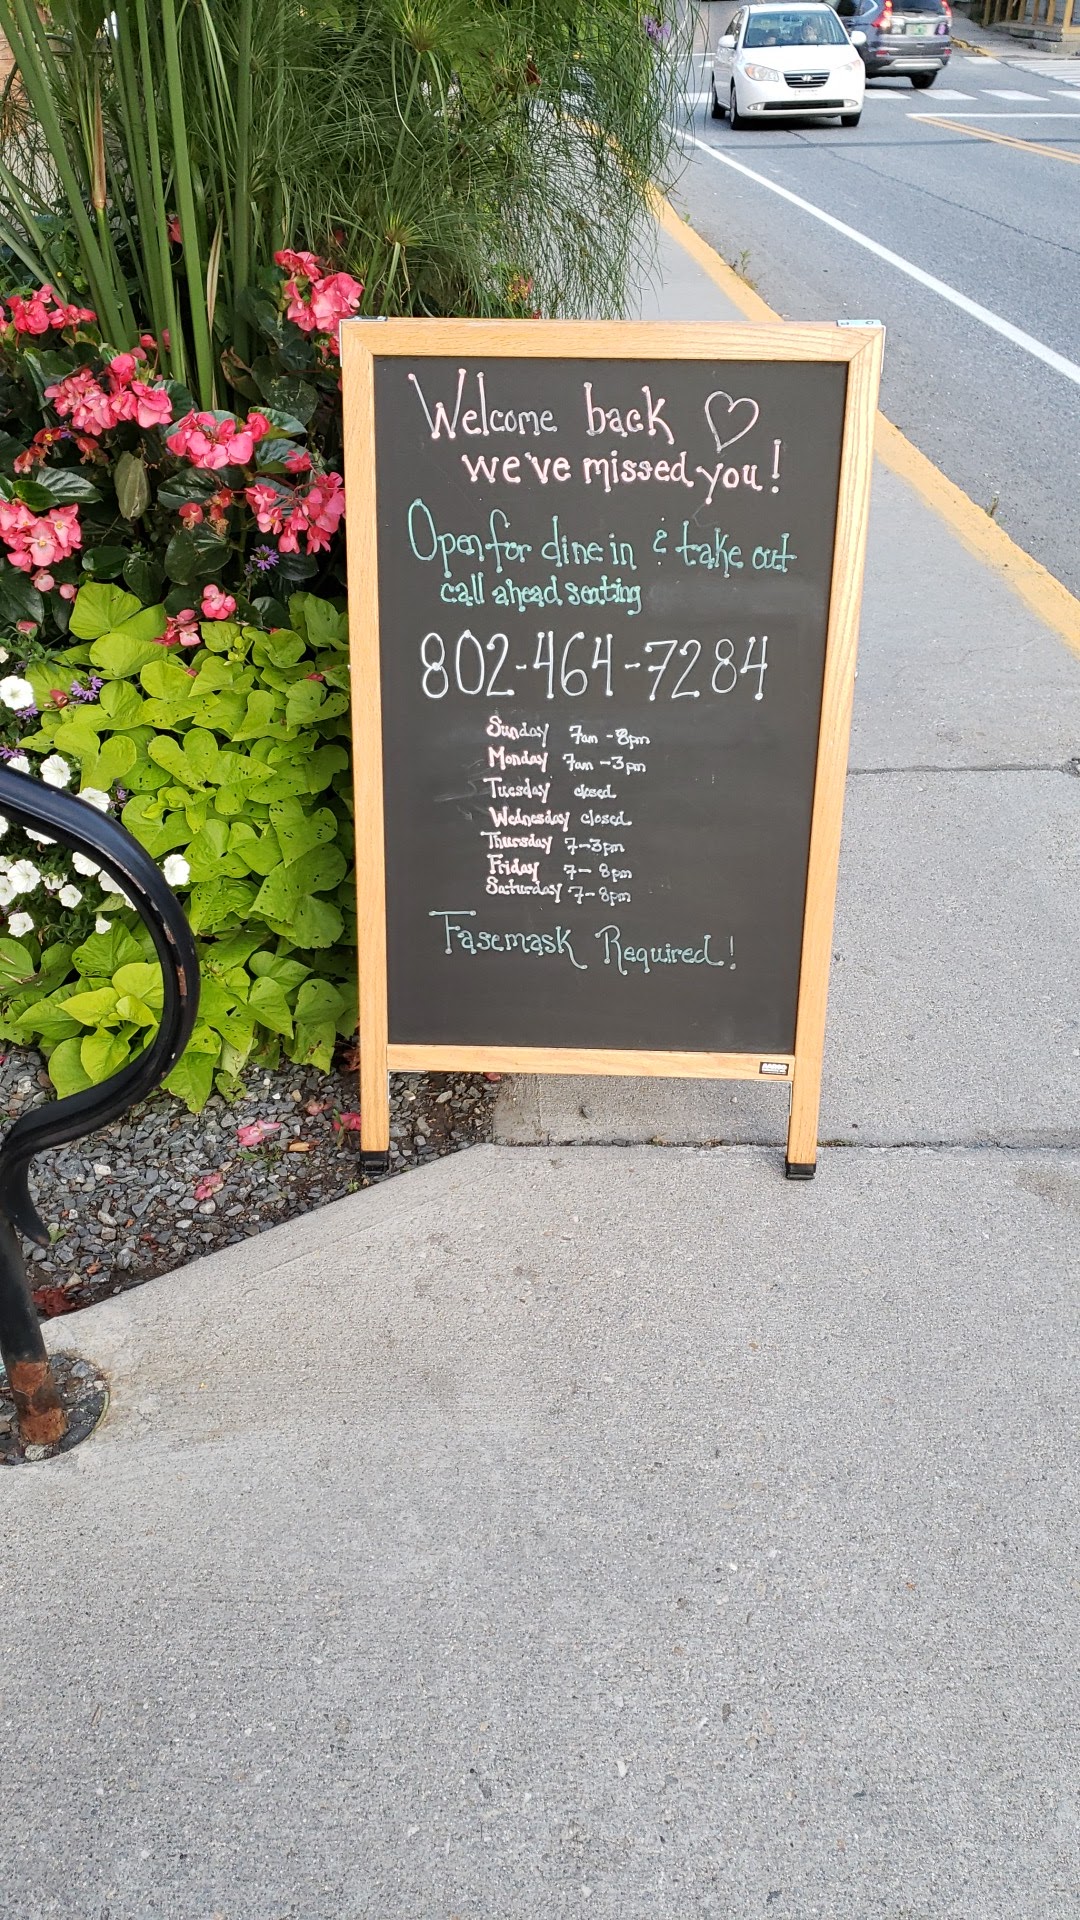 Welcome back
we've missed you!
Open for dine in & take out
call ahead seating
802-464-7284
Sunday 7am - 8pm
Monday 7am - 3pm
Tuesday closed
Wednesday closed
Thursday 7-3pm
Friday 7-8pm
Saturday 7-8pm
Fasemask Required!